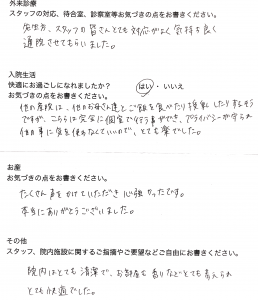 外来診療
スタッフの対応、待合室、診察室等お気づきの点をお書きください。
先生方、スタッフの皆さんとても対応がよく気持ち良く
通院させてもらいました。
入院生活
快適にお過ごしになれましたか？　はい・いいえ
お気づきの点をお書きください。
他の産院は、他のお母さん達とご飯を食べたり授乳したりするそう
ですが、こちらは完全に個室で行う事ができ、プライバシーが守られ
他の事に気を使わなくていいので、とても楽でした。
お産
お気づきの点をお書きください。
たくさん声をかけていただき心強かったです。
本当にありがとうございました。
その他
スタッフ、院内施設に関するご指摘やご要望などご自由にお書きください。
院内はとても清潔で、お部屋も香りなどとても考えられ
とても快適でした。